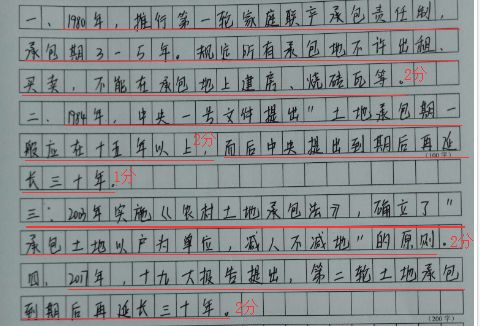 一、1980年，推行第一轮家庭联产承包责任制，
承包期3-5年。规定所有承包地不许出租、
买卖，不能在承包地上建房、烧砖瓦等。2分
二、1984年，中央一号文件提出"土地承包期一
般应在十五年以上，2分而后中央提出到期后再延
(100字)
长三十年。1分
三：2003年实施《农村土地承包法》，确立了"
承包土地以户为单位，减人不减地"的原则。2分
四、2017年，十九大报告提出，第二轮土地承包
到期后再延长三十年。2分
(200字)